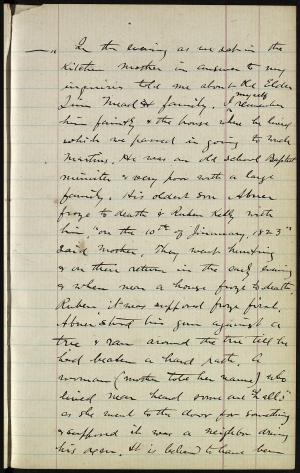 — „ In the evening as we sat in the
Kitchen mother in answer to my
inquiries told me about the Elder
Jim Mead & family. I myself remember
him faintly & the house where he lived
which we passed in going to Uncle
Martins. He was an old school Baptist
minister & very poor with a large
family. His oldest son Abner
froze to death & Ruben Kelly with
him "on the 10th of January, 1823"
said Mother. They went hunting
& on their return in the early evening
& when near a house froze to death.
Ruben, it was supposed froze first.
Abner stood his gun against a
tree & ran around the tree till he
had beaten a hard path. A
woman (mother told her name) who
lived near heard some one "hello"
as she went to the door for something
& supposed it was a neighbor driving
his oxen. It is believed to have been